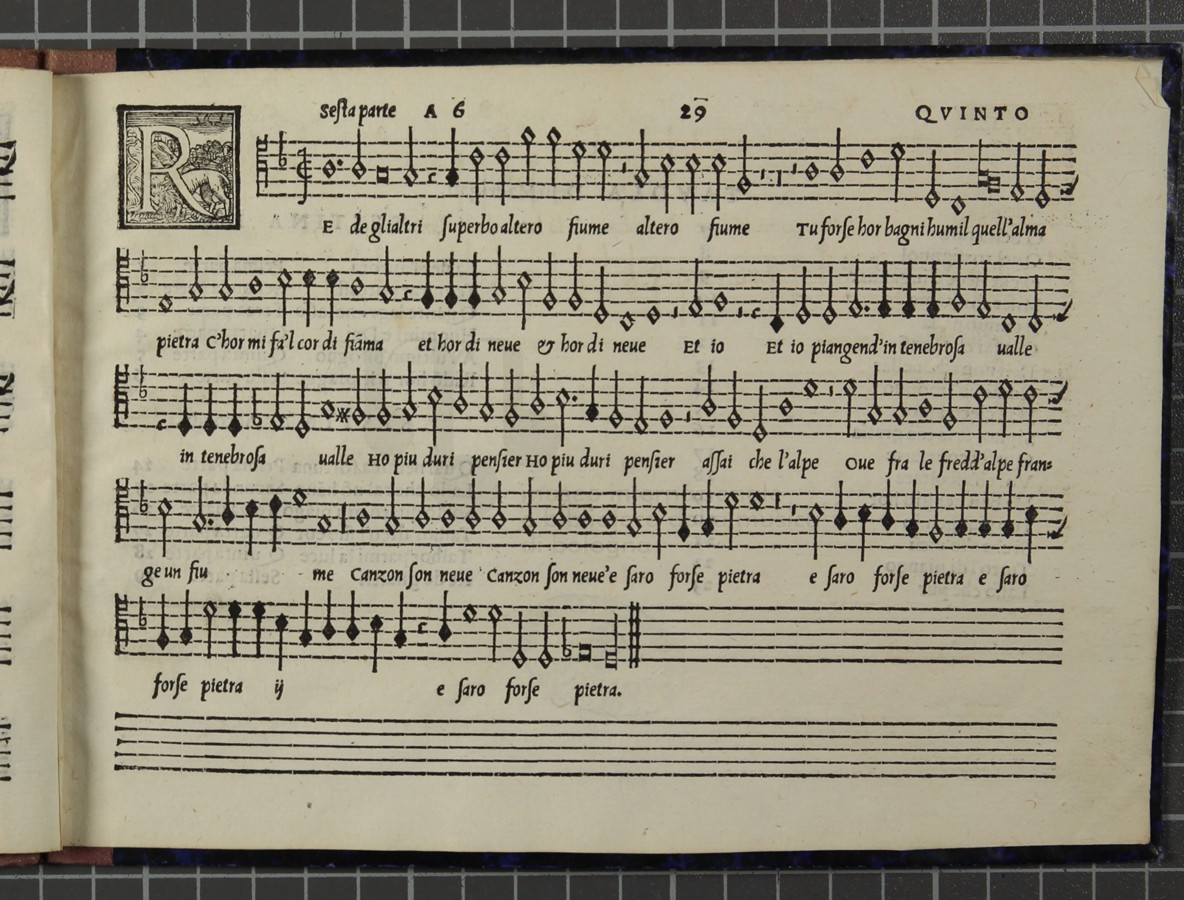 Sesta parte A 6 29 QVINTO
RE de gli altri superbo altero fiume altero fiume Tu forse hor bagni humil quell'alma
pietra C'hor mi fa'l cor di fiãma et hor di neue & hor di neue Et io Et io piangend'in tenebrosa ualle
in tenebrosa ualle Ho piu duri pensier Ho piu duri pensier assai che l'alpe Oue fra le fredd'alpe fran=
ge un fiu me Canzon son neue Canzon son neue'e saro forse pietra e saro forse pietra e saro
forse pietra ij e saro forse pietra.